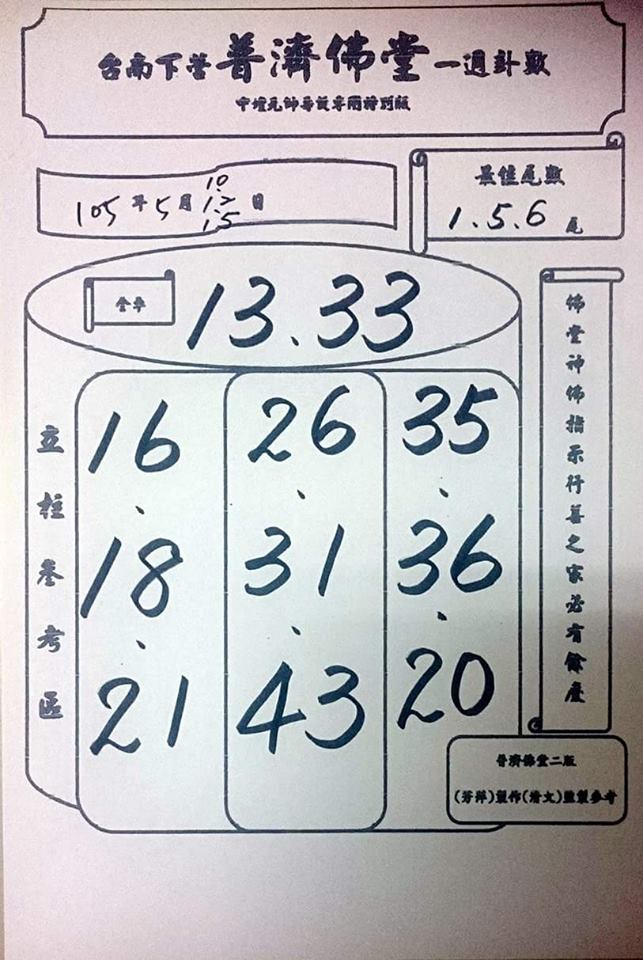 台南下營普濟佛堂一週計數
中壇元帥壽誕專用特別版
10
105年5月12日
15
最佳尾數
1.5.6尾
全車
13.33
立柱參考區
16、18、21
26、31、43
35、36、20
佛堂神佛指示行善之家必有餘慶
普濟佛堂二版
(芳萍)製作(清文)監製參考